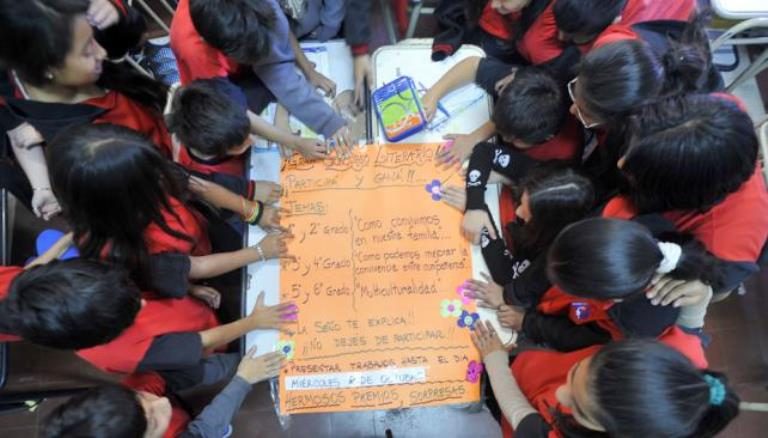 LITERARIO
¡PARTICIPÁ Y GANÁ!!...
TEMAS:
y 2° Grado "Como convivimos
en nuestra familia"...
y 4° Grado "Como podemos mejorar la
convivencia entre compañeros.
5° y 6° Grado "Multiculturalidad"
LA SEÑO TE EXPLICA!!
¡¡NO DEJES DE PARTICIPAR!!
PRESENTAR TRABAJOS HASTA EL DIA
MIÉRCOLES DE OCTUBRE
HERMOSOS PREMIOS, SORPRESAS